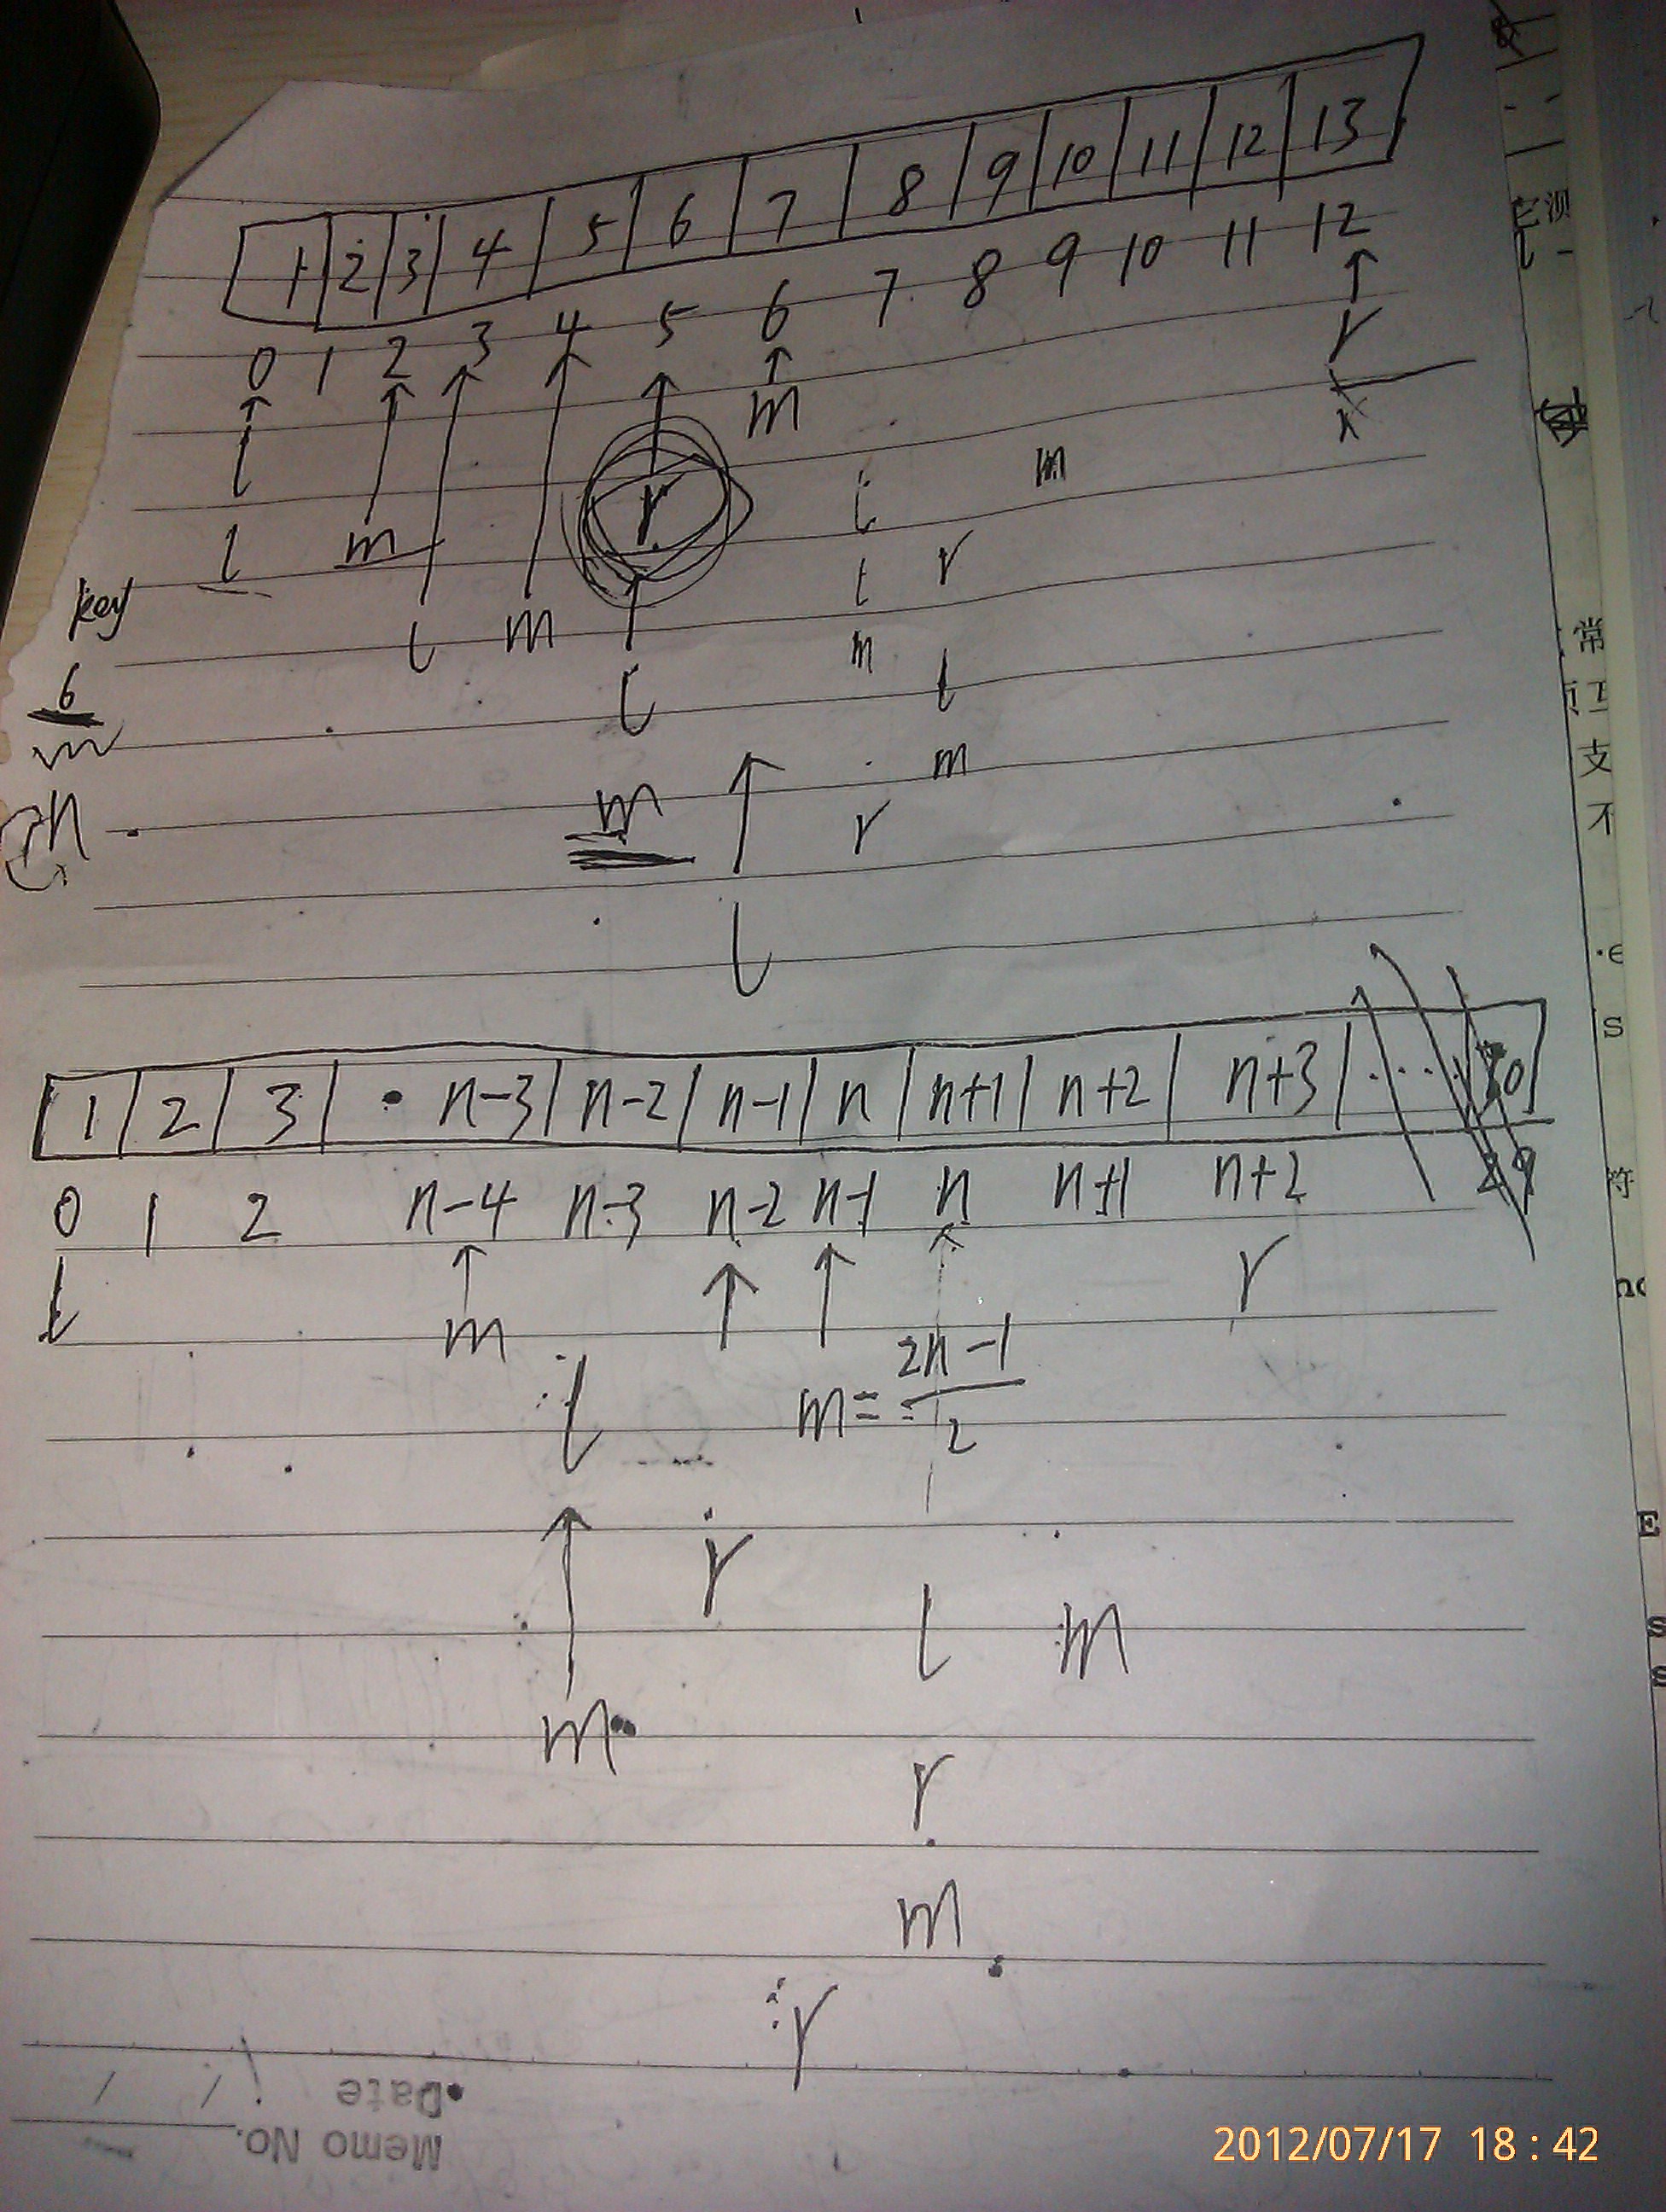 1 2 3 4 5 6 7 8 9 10 11 12 13
0 1 2 3 4 5 6 7 8 9 10 11 12
l m r
m
l m r l r
key l m l m
6 l l
m m
n m r
l
1 2 3 • n-3 n-2 n-1 n n+1 n+2 n+3 ...
0 1 2 n-4 n-3 n-2 n-1 n n+1 n+2 29
l m r
l m = 2n-1 / 2
r
l m
m
r
m
r
Date / /
Memo No.
常
支
不
符
E
s
s
2012/07/17 18:42